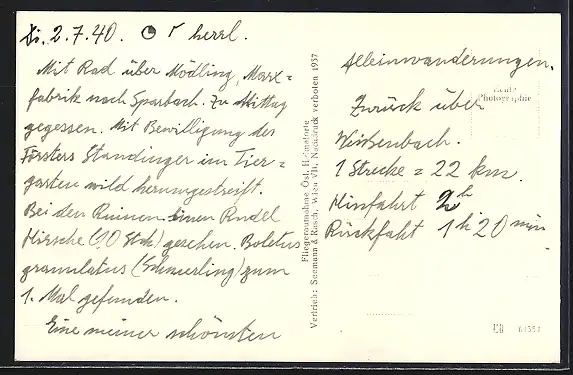 Di. 2.7.40. herrl.
Mit Rad über Mödling, Marx=
fabrik nach Sparbach. Zu Mittag
gegessen. Mit Bewilligung des
Försters Standinger im Tier=
garten wild herumgestreift.
Bei den Ruinen einen Rudel
Hirsche (10 Stk) gesehen. Boletus
granulatus (Schmerling) zum
1. Mal gefunden.
Eine meiner schönsten
Fliegeraufnahme Öst. Heimatorte
Vertrieb: Seemann & Rasch, Wien VII, Nachdruck verboten 1937
Alleinwanderungen.
Echte
Photographie
Zurück über
Weissenbach.
1 Strecke = 22 km.
Hinfahrt 2h
Rückfahrt 1h 20 min